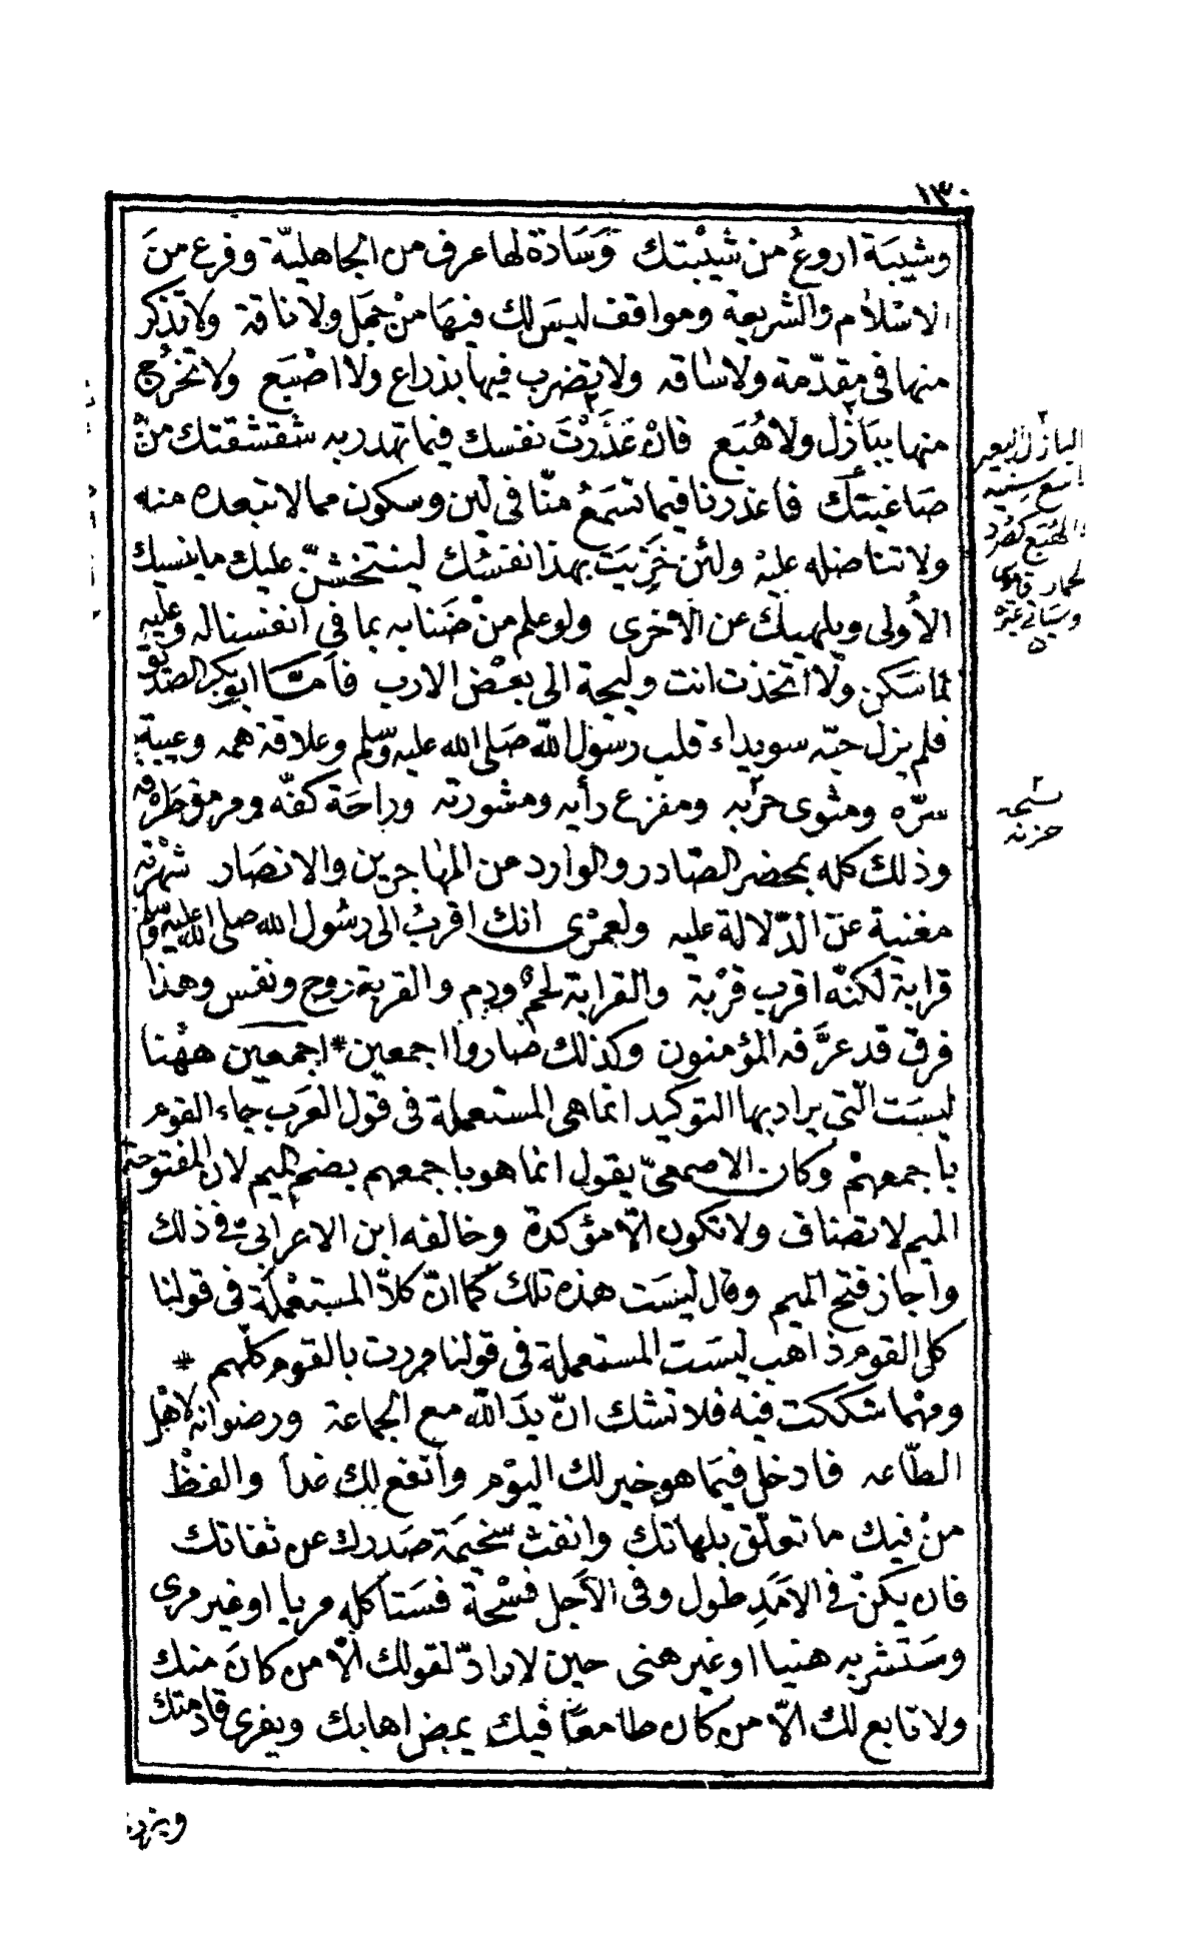 ١٣٠
وشيبَة اروعُ من شيْبتك وَسَادة لها عرق من الجاهليّة وفرع منَ
الاسْلام والشريعة ومواقف ليسَ لك فيهَا منْ جمَل ولا ناقة ولا تذكر
منها فى مقدّمة ولا سَاقه ولا تضرب فيها بذراع ولا اصْبَع ولا تخرُج
منها ببَازل ولا هُبَع فان عَذَرْتَ نفسك فيما تهدر به شقشقتك منْ
صَاغيتك فاعذرنا فيما تسَمعُ منّا فى لين وسكون مما لا تبعده منه
ولا تناضله عليْه ولئن خَزِيَت بهذا نفسُك لينتخشنّ عليك ما ينسيك
الأولى ويلهيك عن الأخرى ولو علم منْ ضننا به بما فى أنفسنا له وعليه
لما سَكن ولا اتخذت انت وليجة الى بعْض الارب فأمّا ابو بكر الصديق
فلم يزل حبّه سويداء قلب رسُول اللّه صَلى الله عليه وسلم وعلاقة همه وعيبة
سرّه ومثوى حزنه ومفزع رأيه ومشورته وراحَة كفّه ومرمق طرفه
وذلك كله بمحضر الصّادر والوارد من المهاجرين والانصَار شهْرته
مغنية عن الدّلالة عليه ولعمرْى انك اقربُ الى رسُول الله صلى الله عليه وسلم
قرابة لكنّه اقرب قرْبة والقرابة لحمٌ ودم والقربة روح ونفس وهذا
فرق قد عرَفه المؤمنون وكذلك صَاروا اجمعين * اجمعين ههُنا
ليسَت التى يراد بها التوكيد انما هى المستعملة فى قول العَرب جاء القوم
بأجمعهمْ وكان الاصمعىّ يقول انما هو باجمعهم بضم الميم لان المفتوحة
الميم لا تضاف ولا تكون الّا مؤكدة وخالفه ابن الاعرابى فى ذلك
واجاز فتح الميم وقال ليسَت هذه تلك كما انّ كلاّ المستعْملة فى قولنا
كل القوم ذاهب ليسَت المستعملة فى قولنا مررت بالقوم كلّهم *
ومهْما شككت فيه فلا تشك انّ يدَ اللّه مع الجماعة ورضوانه لاهْل
الطّاعه فادخل فيمَا هو خير لك اليوْم وأنفع لك غداً والفظْ
منْ فيك ما تعلّق بلهاتك وانفث سخيمَة صَدرك عن ثقاتك
فان يَكنْ فى الامَدِ طول وفى الأجل فسْحة فسَتأكله مريا او غير مرى
وسَتشربه هنيا او غير هنى حين لا رادّ لقولك الّا من كان منك
ولا تابع لك الّا من كان طامعًا فيك يمض اهابك ويفرى قادمتك
البازل البعير
تسع سنيه
والهُبَع كصُرَد
الحمار قاموس
وسيأتى
٢
شجه
حزنه